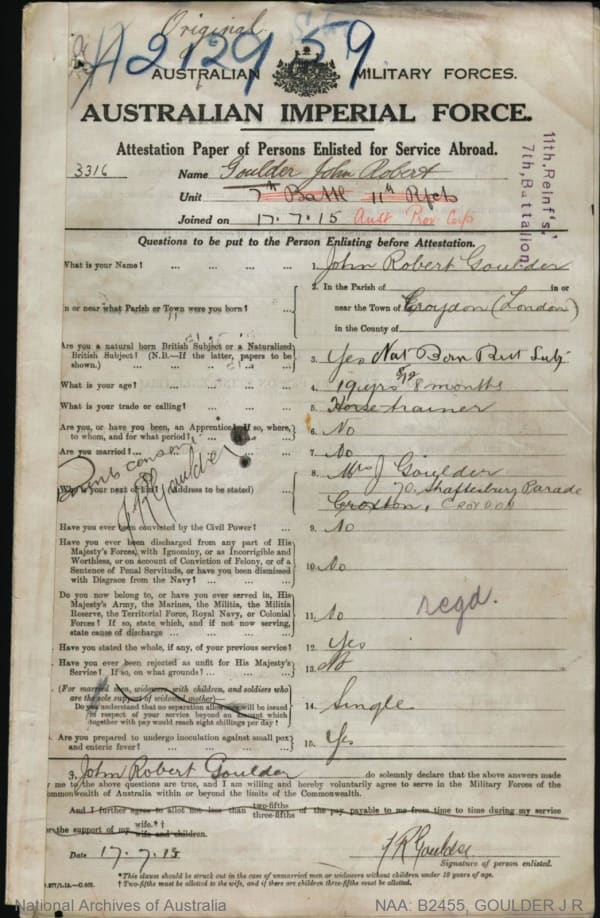 Original
A21295 9
AUSTRALIAN MILITARY FORCES.
AUSTRALIAN IMPERIAL FORCE.
Attestation Paper of Persons Enlisted for Service Abroad.
3316 Name Goulder John Robert
Unit 7th Battl 11th Rfcts
Joined on 17.7.15 Aust Prov Corps
11th. Reinf'ts.
7th, Battalion
Questions to be put to the Person Enlisting before Attestation.
What is your Name? ... ... ... ... 1. John Robert Goulder
In or near what Parish or Town were you born? ... 2. In the Parish of in or
near the Town of Croydon (London)
in the County of
Are you a natural born British Subject or a Naturalized
British Subject? (N.B.—If the latter, papers to be
shown.) ... ... ... ... 3. Yes Nat Born Brit Subj
What is your age? ... ... ... ... 4. 19 yrs 8 months 8/12
What is your trade or calling? ... ... ... 5. Horse trainer
Are you, or have you been, an Apprentice? If so, where,
to whom, and for what period? ... 6. No
Are you married? ... ... 7. No
Parents consent
J R Goulder
Who is your next of kin? (Address to be stated) ... 8. Mrs J Goulder
70. Shaftesbury Parade
Croxton, CROYDON
Have you ever been convicted by the Civil Power? ... 9. No
Have you ever been discharged from any part of His
Majesty's Forces, with Ignominy, or as Incorrigible and
Worthless, or on account of Conviction of Felony, or of a
Sentence of Penal Servitude, or have you been dismissed
with Disgrace from the Navy? ... ... 10. No
Do you now belong to, or have you ever served in, His
Majesty's Army, the Marines, the Militia, the Militia
Reserve, the Territorial Force, Royal Navy, or Colonial
Forces? If so, state which, and if not now serving,
state cause of discharge ... ... ... 11. No
regd.
Have you stated the whole, if any, of your previous service? 12. Yes
Have you ever been rejected as unfit for His Majesty's
Service? If so, on what grounds? ... ... 13. No
(For married men, widowers with children, and soldiers who
are the sole support of widowed mother)—
Do you understand that no separation allowance will be issued
in respect of your service beyond an amount which
together with pay would reach eight shillings per day? 14. Single
Are you prepared to undergo inoculation against small pox
and enteric fever? ... ... ... 15. Yes
3. John Robert Goulder do solemnly declare that the above answers made
by me to the above questions are true, and I am willing and hereby voluntarily agree to serve in the Military Forces of the
Commonwealth of Australia within or beyond the limits of the Commonwealth.
And I further agree to allot not less than two-fifths three-fifths of the pay payable to me from time to time during my service
for the support of my wife.*† wife and children.
Date 17.7.15 J R Goulder
Signature of person enlisted.
*This clause should be struck out in the case of unmarried men or widowers without children under 18 years of age.
† Two-fifths must be allotted to the wife, and if there are children three-fifths must be allotted.
National Archives of Australia NAA: B2455, GOULDER J R